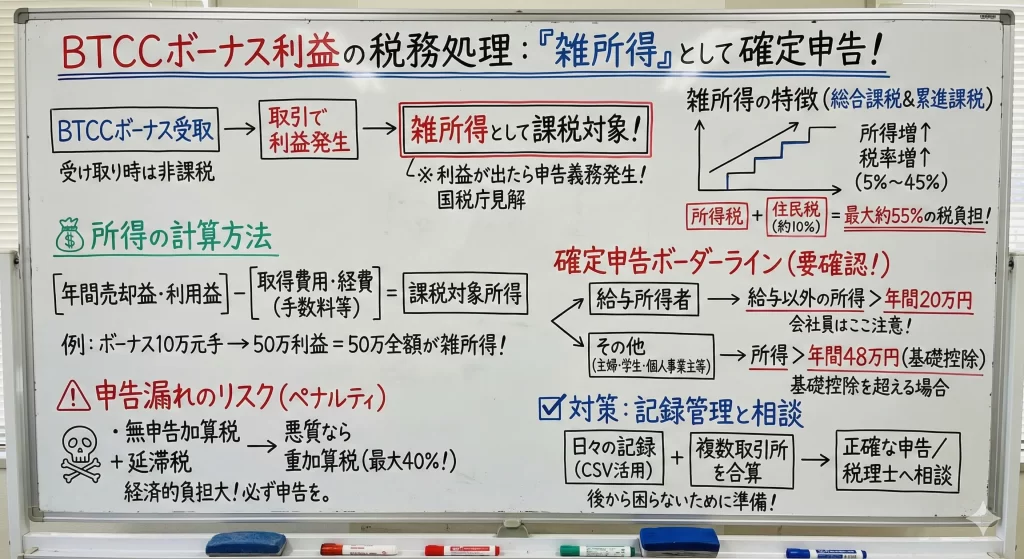 BTCCボーナス利益の税務処理：『雑所得』として確定申告！
BTCCボーナス受取
受け取り時は非課税
取引で
利益発生
雑所得として課税対象！
※利益が出たら申告義務発生！
国税庁見解
雑所得の特徴（総合課税&累進課税）
所得増↑
税率増↑
（5%〜45%）
所得税 + 住民税（約10%） = 最大約55%の税負担！
所得の計算方法
[年間売却益・利用益] − [取得費用・経費（手数料等）] = 課税対象所得
例：ボーナス10万元手→50万利益＝50万全額が雑所得！
確定申告ボーダーライン（要確認！）
給与所得者 → 給与以外の所得 > 年間20万円
会社員はここ注意！
その他
（主婦・学生・個人事業主等）
→ 所得 > 年間48万円（基礎控除）
基礎控除を超える場合
申告漏れのリスク（ペナルティ）
・無申告加算税
+ 延滞税
→ 悪質なら
重加算税（最大40%！）
経済的負担大！必ず申告を。
対策：記録管理と相談
日々の記録
（CSV活用）
+
複数取引所
を合算
→
正確な申告／
税理士へ相談
後から困らないために準備！